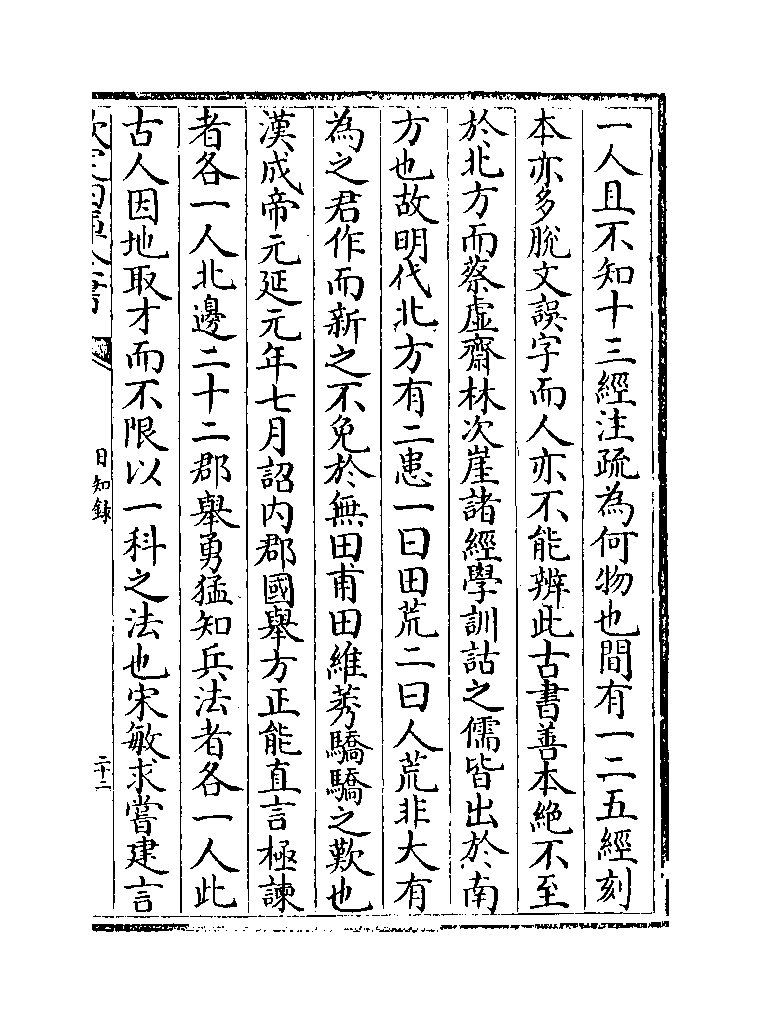 一人且不知十三經注疏為何物也間有一二五經刻
本亦多脫文誤字而人亦不能辨此古書善本絶不至
於北方而蔡虛齋林次崖諸經學訓詁之儒皆出於南
方也故明代北方有二患一曰田荒二曰人荒非大有
為之君作而新之不免於無田甫田維莠驕驕之歎也
漢成帝元延元年七月詔内郡國舉方正能直言極諫
者各一人北邊二十二郡舉勇猛知兵法者各一人此
古人因地取才而不限以一科之法也宋敏求嘗建言
欽定四庫全書
日知録
二十二